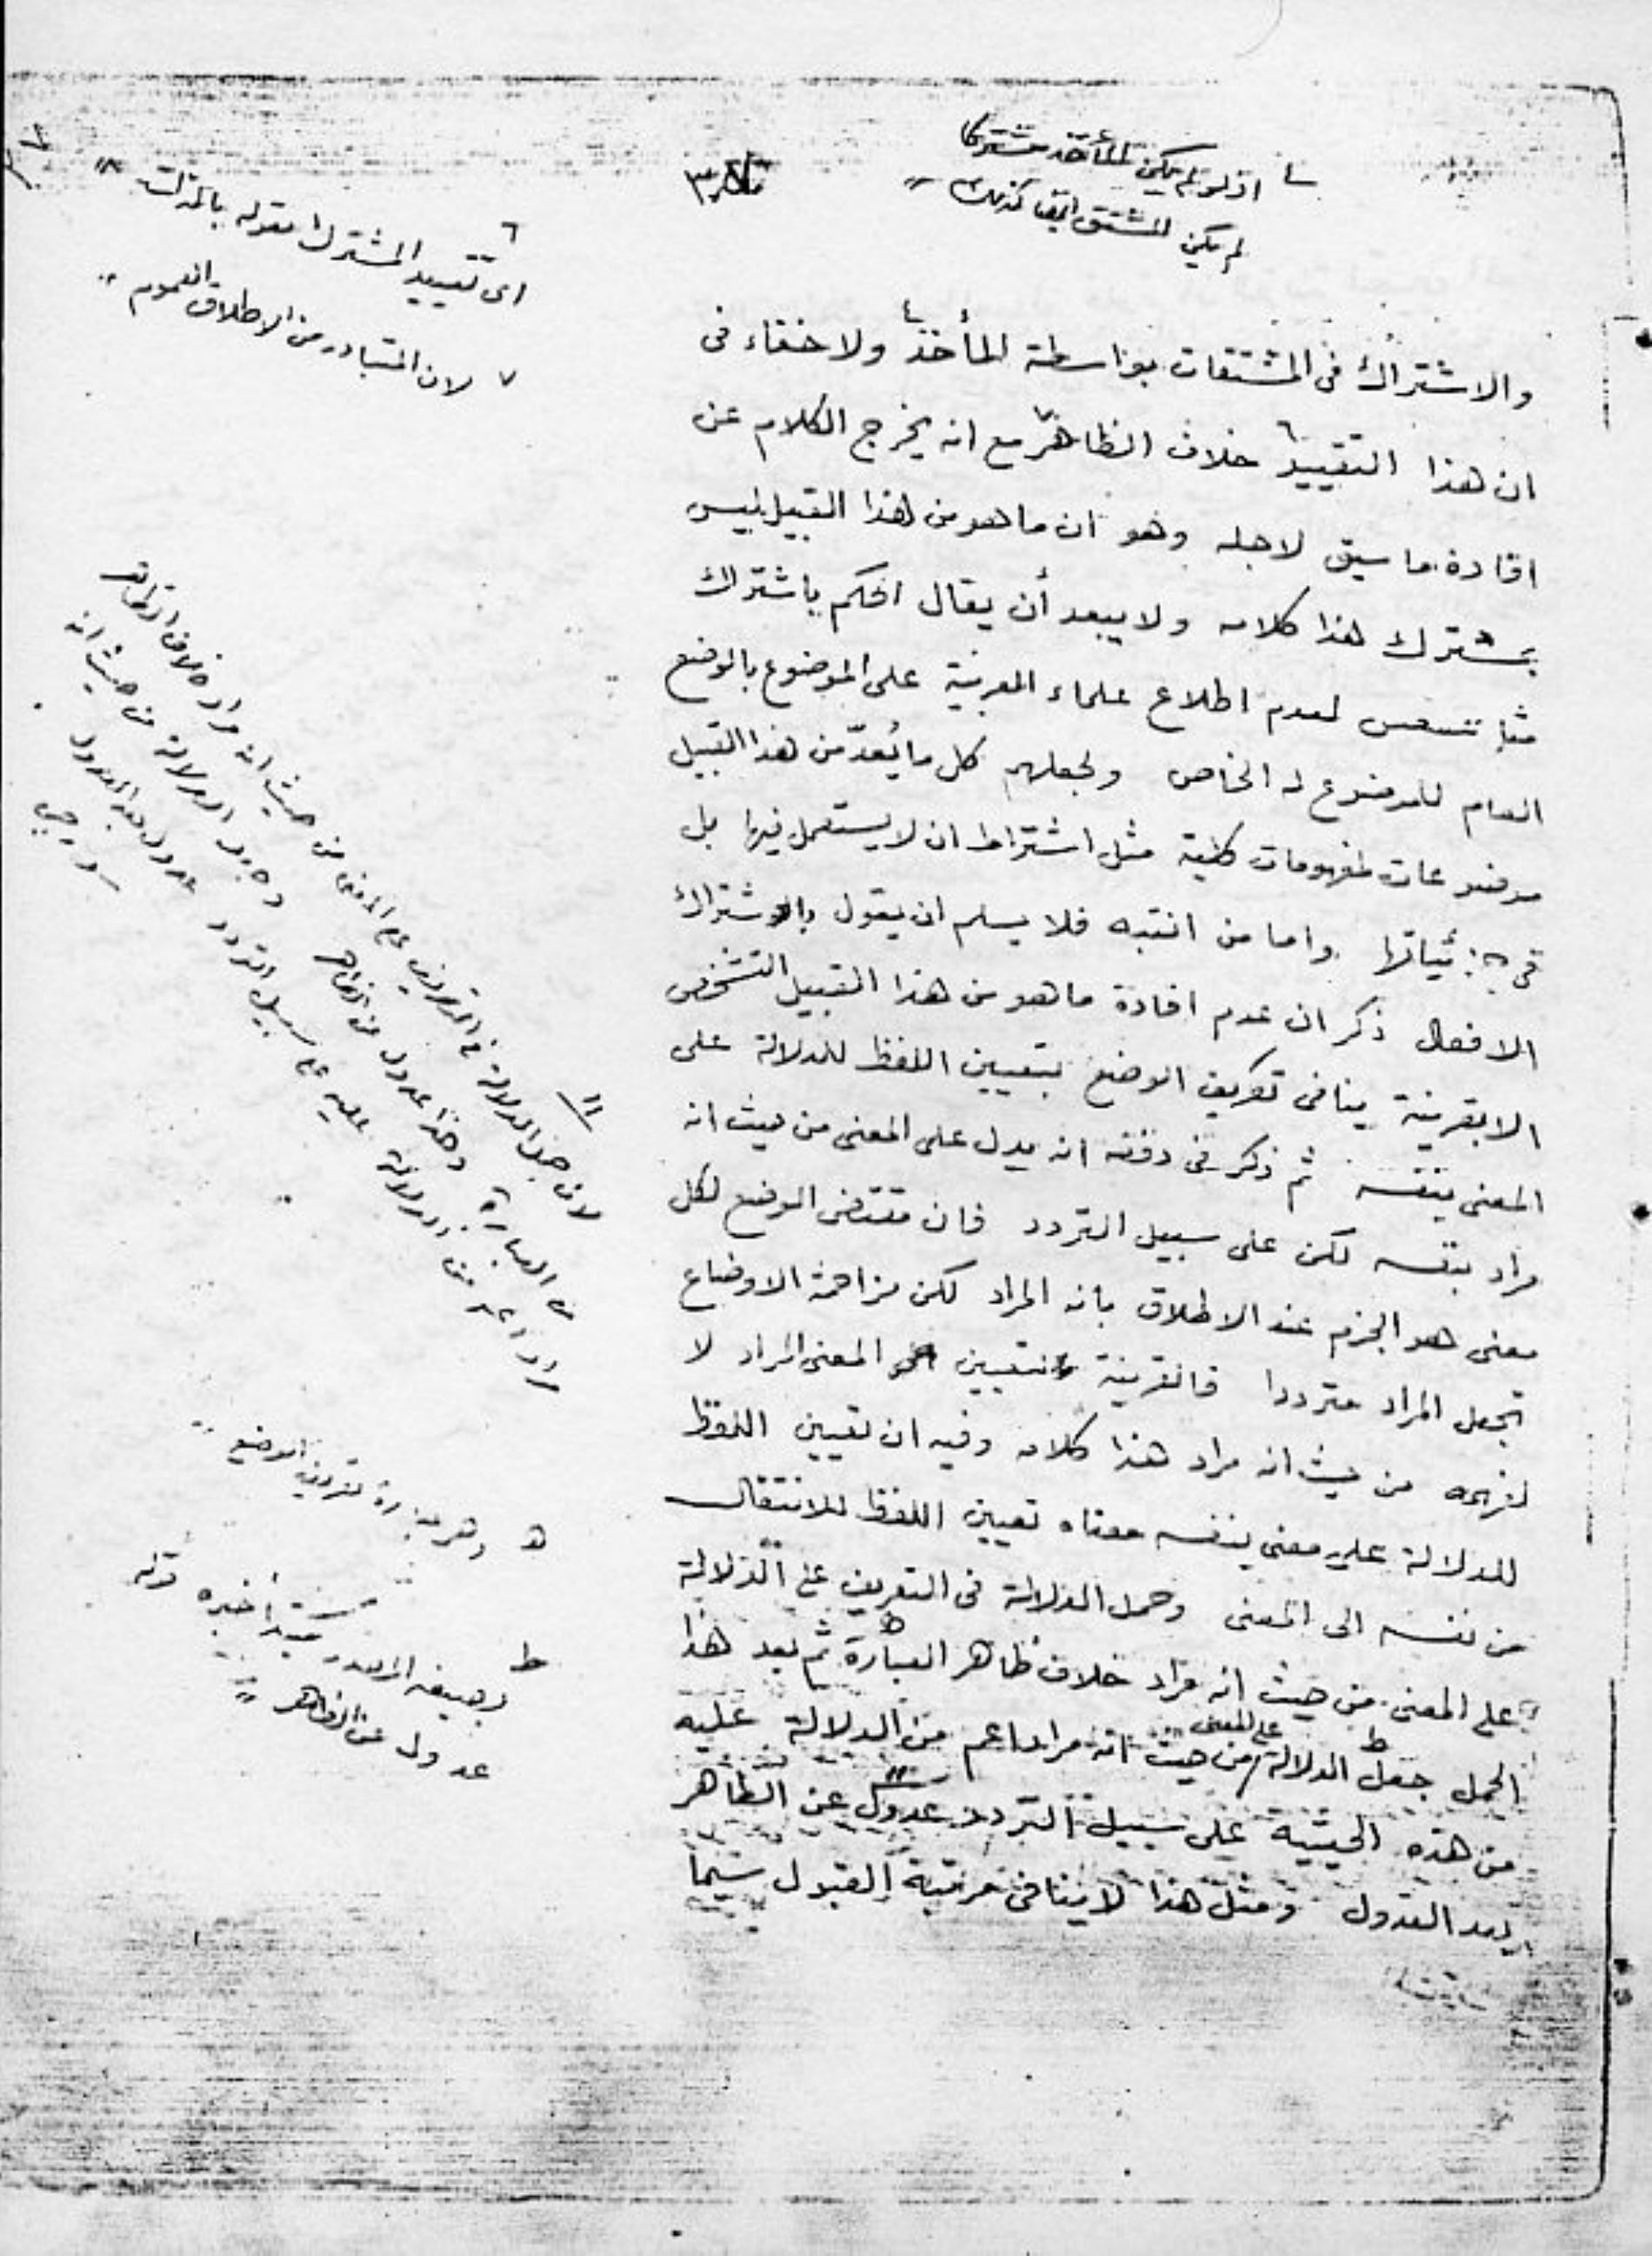 اذ لو لم يكن المأخذ مشتركا
لم يكن المشتق ايضا كذلك
اى تقييد المشترك بقوله بالذات
لان المتبادر من الاطلاق العموم
والاشتراك فى المشتقات بواسطة المأخذ ولا خفاء فى
ان هذا التقييد خلاف الظاهر مع انه يخرج الكلام عن
افادة ما سيق لاجله وهو ان ما هو من هذا القبيل ليس
بمشترك هذا كلامه ولا يبعد أن يقال الحكم باشتراك
لعدم اطلاع علماء العربية على الموضوع بالوضع
العام للموضوع له الخاص ولجعلهم كل ما يُعدّ من هذا القبيل
موضوعات لمفهومات كلية مثل اشتراط ان لا يستعمل فيها بل
فى جزئياتها واما من انتبه فلا يسلم ان يقول بالاشتراك
الافعال ذكر ان عدم افادة ما هو من هذا القبيل التشخص
الا بقرينة ينافى تعريف الوضع بتعيين اللفظ للدلالة على
المعنى بنفسه ثم ذكر فى دفعه انه يدل على المعنى من حيث انه
مراد بنفسه لكن على سبيل التردد فان مقتضى الوضع لكل
معنى هو الجزم عند الاطلاق بانه المراد لكن مزاحمة الاوضاع
تجعل المراد مترددا فالقرينة لتعيين المعنى المراد لا
لفهمه من حيث انه مراد هذا كلامه وفيه ان تعيين اللفظ
للدلالة على معنى بنفسه معناه تعيين اللفظ للانتقال
من نفسه الى المعنى وحمل الدلالة فى التعريف على الدلالة
على المعنى من حيث انه مراد خلاف ظاهر العبارة ثم بعد هذا
الحمل جعل الدلالة على المعنى من حيث انه مراد اعم من الدلالة عليه
من هذه الحيثية على سبيل التردد عدول عن الظاهر
بعد العدول ومثل هذا لا ينافى مرتبة القبول سيما
لان حمل الدلالة فى التعريف على المعنى من حيث انه مراد خلاف الظاهر
العبارة وهذا عدول عن الظاهر وجعل الدلالة من حيث انه
مراد اعم من الدلالة عليه على سبيل التردد عدول بعد العدول
وهو عبارة تعريف الوضع
مبتدأ خبره قوله
عدول عن الظاهر